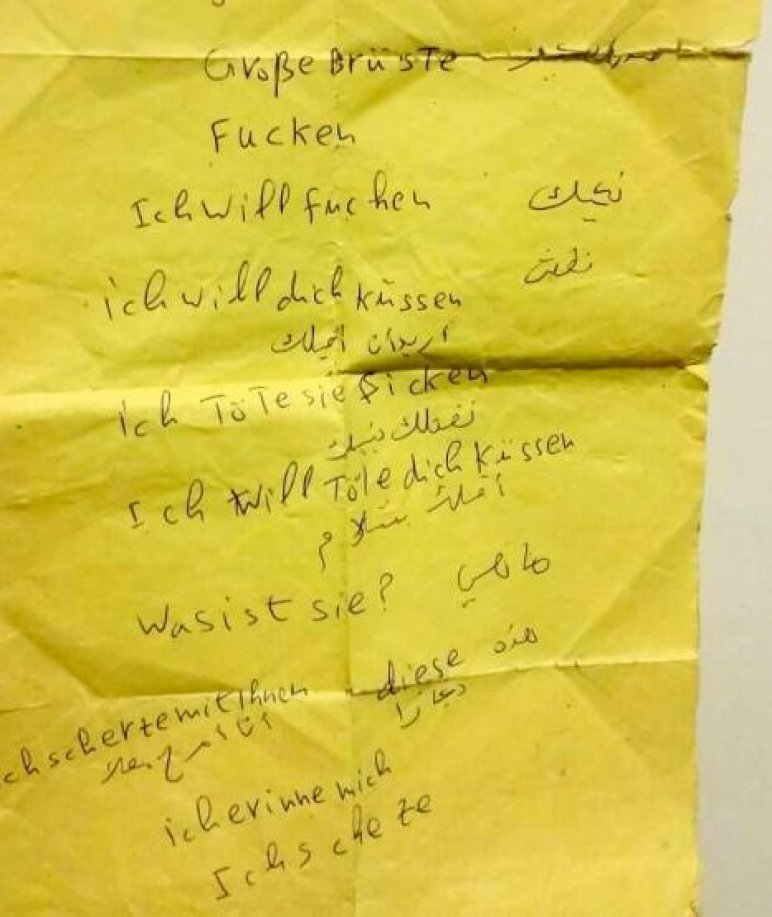 Große Brüste
Fucken
Ich will fucken نجيك
ich will dich küssen
اريدان اقبلك
ich Töte sie ficken
نقتلك نيك
Ich will Töte dich küssen
اقتلك بسلام
was ist sie? ماهي
diese هذه
ch scherze mit Ihnen
انا امزح معك
ich erinne mich
Ich scheze